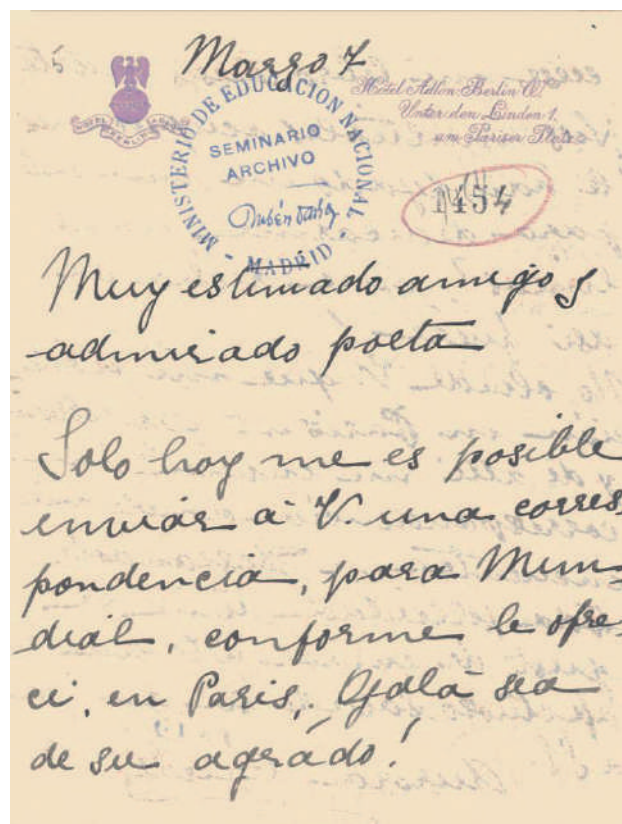 5
Marzo 7
Hôtel Adlon · Berlin W.
Unter den Linden 1.
am Pariser Platz
MINISTERIO DE EDUCACION NACIONAL
SEMINARIO
ARCHIVO
Rubén Darío
MADRID
1454
Muy estimado amigo y
admirado poeta
Solo hoy me es posible
enviar a V. una corres
pondencia, para Mun-
dial, conforme le ofre-
ci, en Paris,. Ojalá sea
de su agrado!